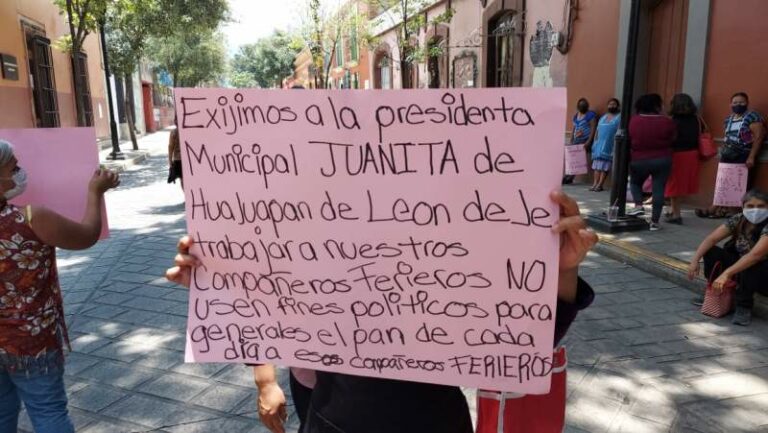 Exijimos a la presidenta
Municipal JUANITA de
HuaJuapan de Leon de Je
trabajar a nuestros
Compañeros Ferieros NO
usen fines politicos para
generales el pan de cada
dia a esos compañeros FERIEROS